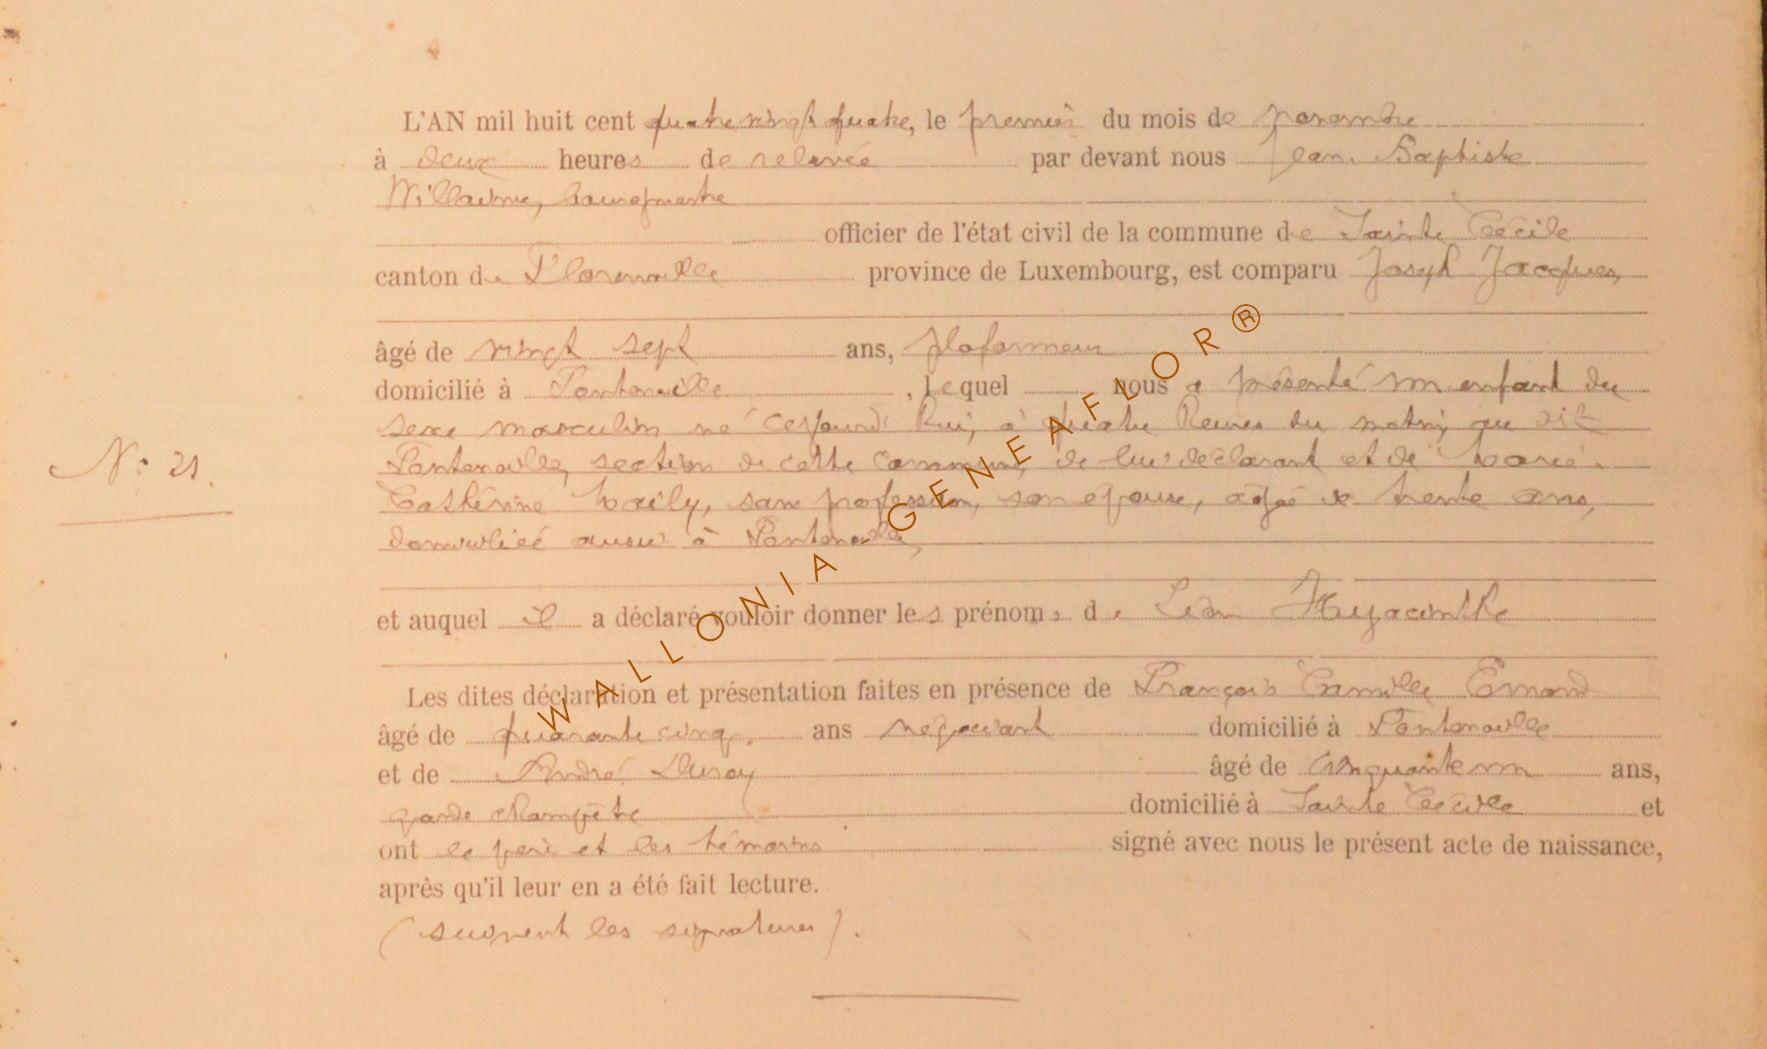 L'AN mil huit cent quatre vingt quatre, le premier du mois de novembre
à deux heures de relevée par devant nous Jean Baptiste
Willaume, bourgmestre
officier de l'état civil de la commune de Sainte Cécile
canton de Florenville province de Luxembourg, est comparu Joseph Jacques,
âgé de vingt sept ans, plafonneur
domicilié à Fontenoille, lequel nous a présenté un enfant du
sexe masculin né cejourd'hui, à quatre heures du matin, au dit
Fontenoille, section de cette commune, de lui déclarant et de Marie
N° 21.
Cathérine Waily, sans profession, son épouse, agée de trente ans,
domiciliée aussi à Fontenoille,
et auquel il a déclaré vouloir donner les prénoms de Léon Hyacinthe
Les dites déclaration et présentation faites en présence de François Camille Emond
âgé de quarante cinq ans négociant domicilié à Fontenoille
et de André Duroy âgé de cinquante un ans,
garde champêtre domicilié à Sainte Cécile et
ont le père et les témoins signé avec nous le présent acte de naissance,
après qu'il leur en a été fait lecture.
(suivent les signatures).
WALLONIA-GENEAFLOR®